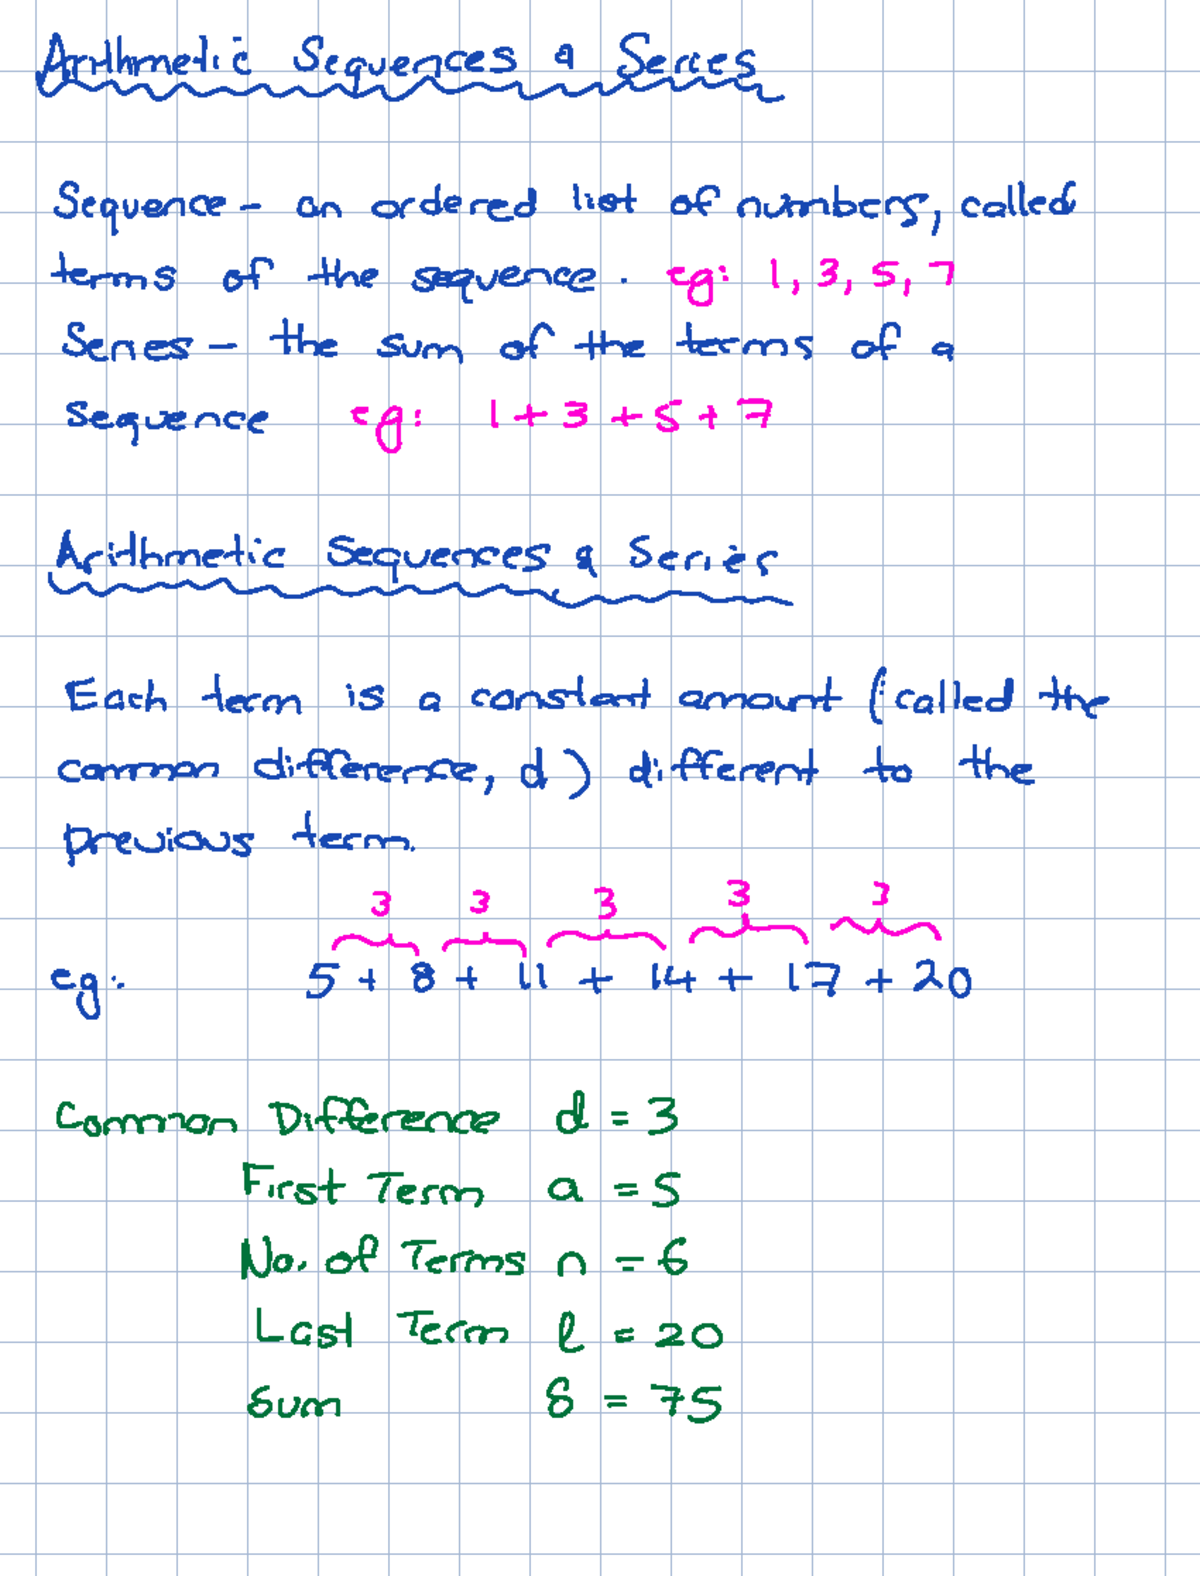 Arithmetic Sequences & Series
Sequence - an ordered list of numbers, called
terms of the sequence. eg: 1, 3, 5, 7
Series - the sum of the terms of a
sequence eg: 1 + 3 + 5 + 7
Arithmetic Sequences & Series
Each term is a constant amount (called the
common difference, d) different to the
previous term.
3 3 3 3 3
eg: 5 + 8 + 11 + 14 + 17 + 20
Common Difference d = 3
First Term a = 5
No. of Terms n = 6
Last Term l = 20
Sum S = 75